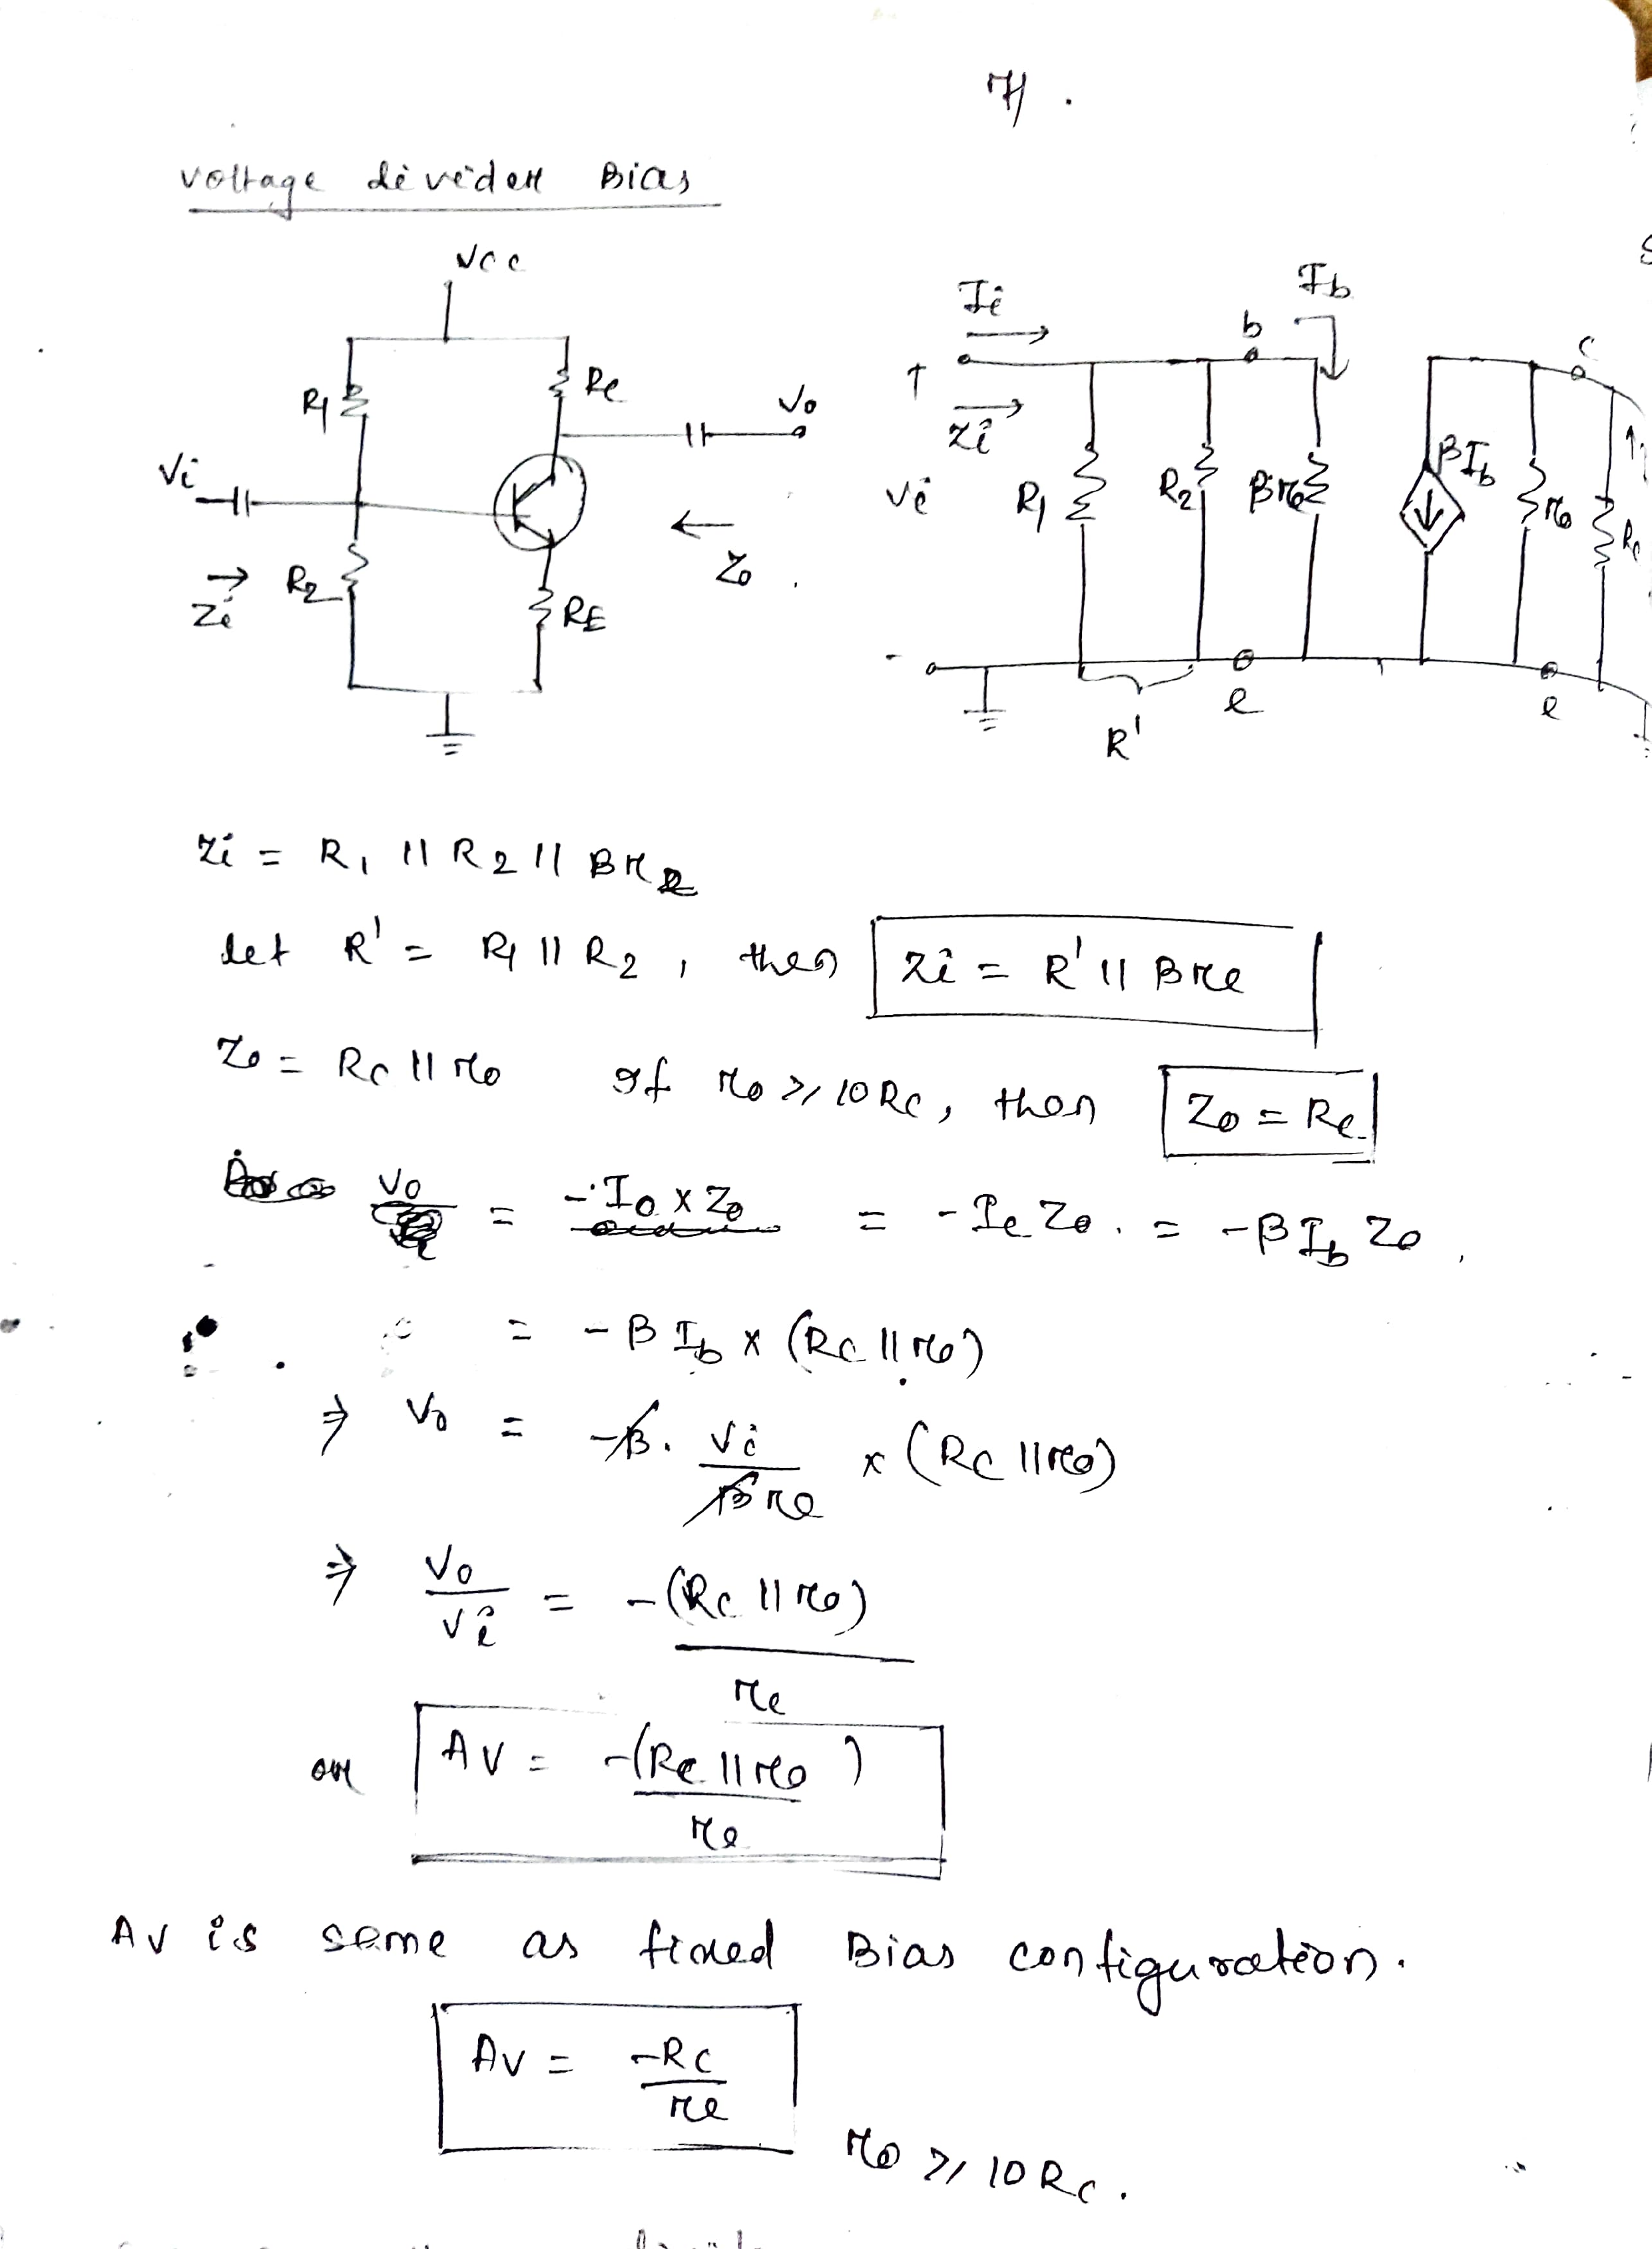 7.
voltage divider Bias
Vcc
R1
Rc
Vo
Vi
Zi
R2
Zo
RE
Ii
Ib
b
c
Zi
Vi
R1
R2
βre
βIb
ro
Rc
R'
e
e
Zi = R1 || R2 || Bre
let R' = R1 || R2 , then Zi = R' || Bre
Zo = Rc || ro If ro ≥ 10Rc, then Zo = Rc
Vo = -Io x Zo = -Ic Zo. = -βIb Zo
= -β Ib x (Rc || ro)
⇒ Vo = -β. Vi/βre x (Rc || ro)
⇒ Vo/Vi = -(Rc || ro)/re
or AV = -(Rc || ro)/re
AV is same as fixed Bias configuration.
AV = -Rc/re
ro ≥ 10Rc.